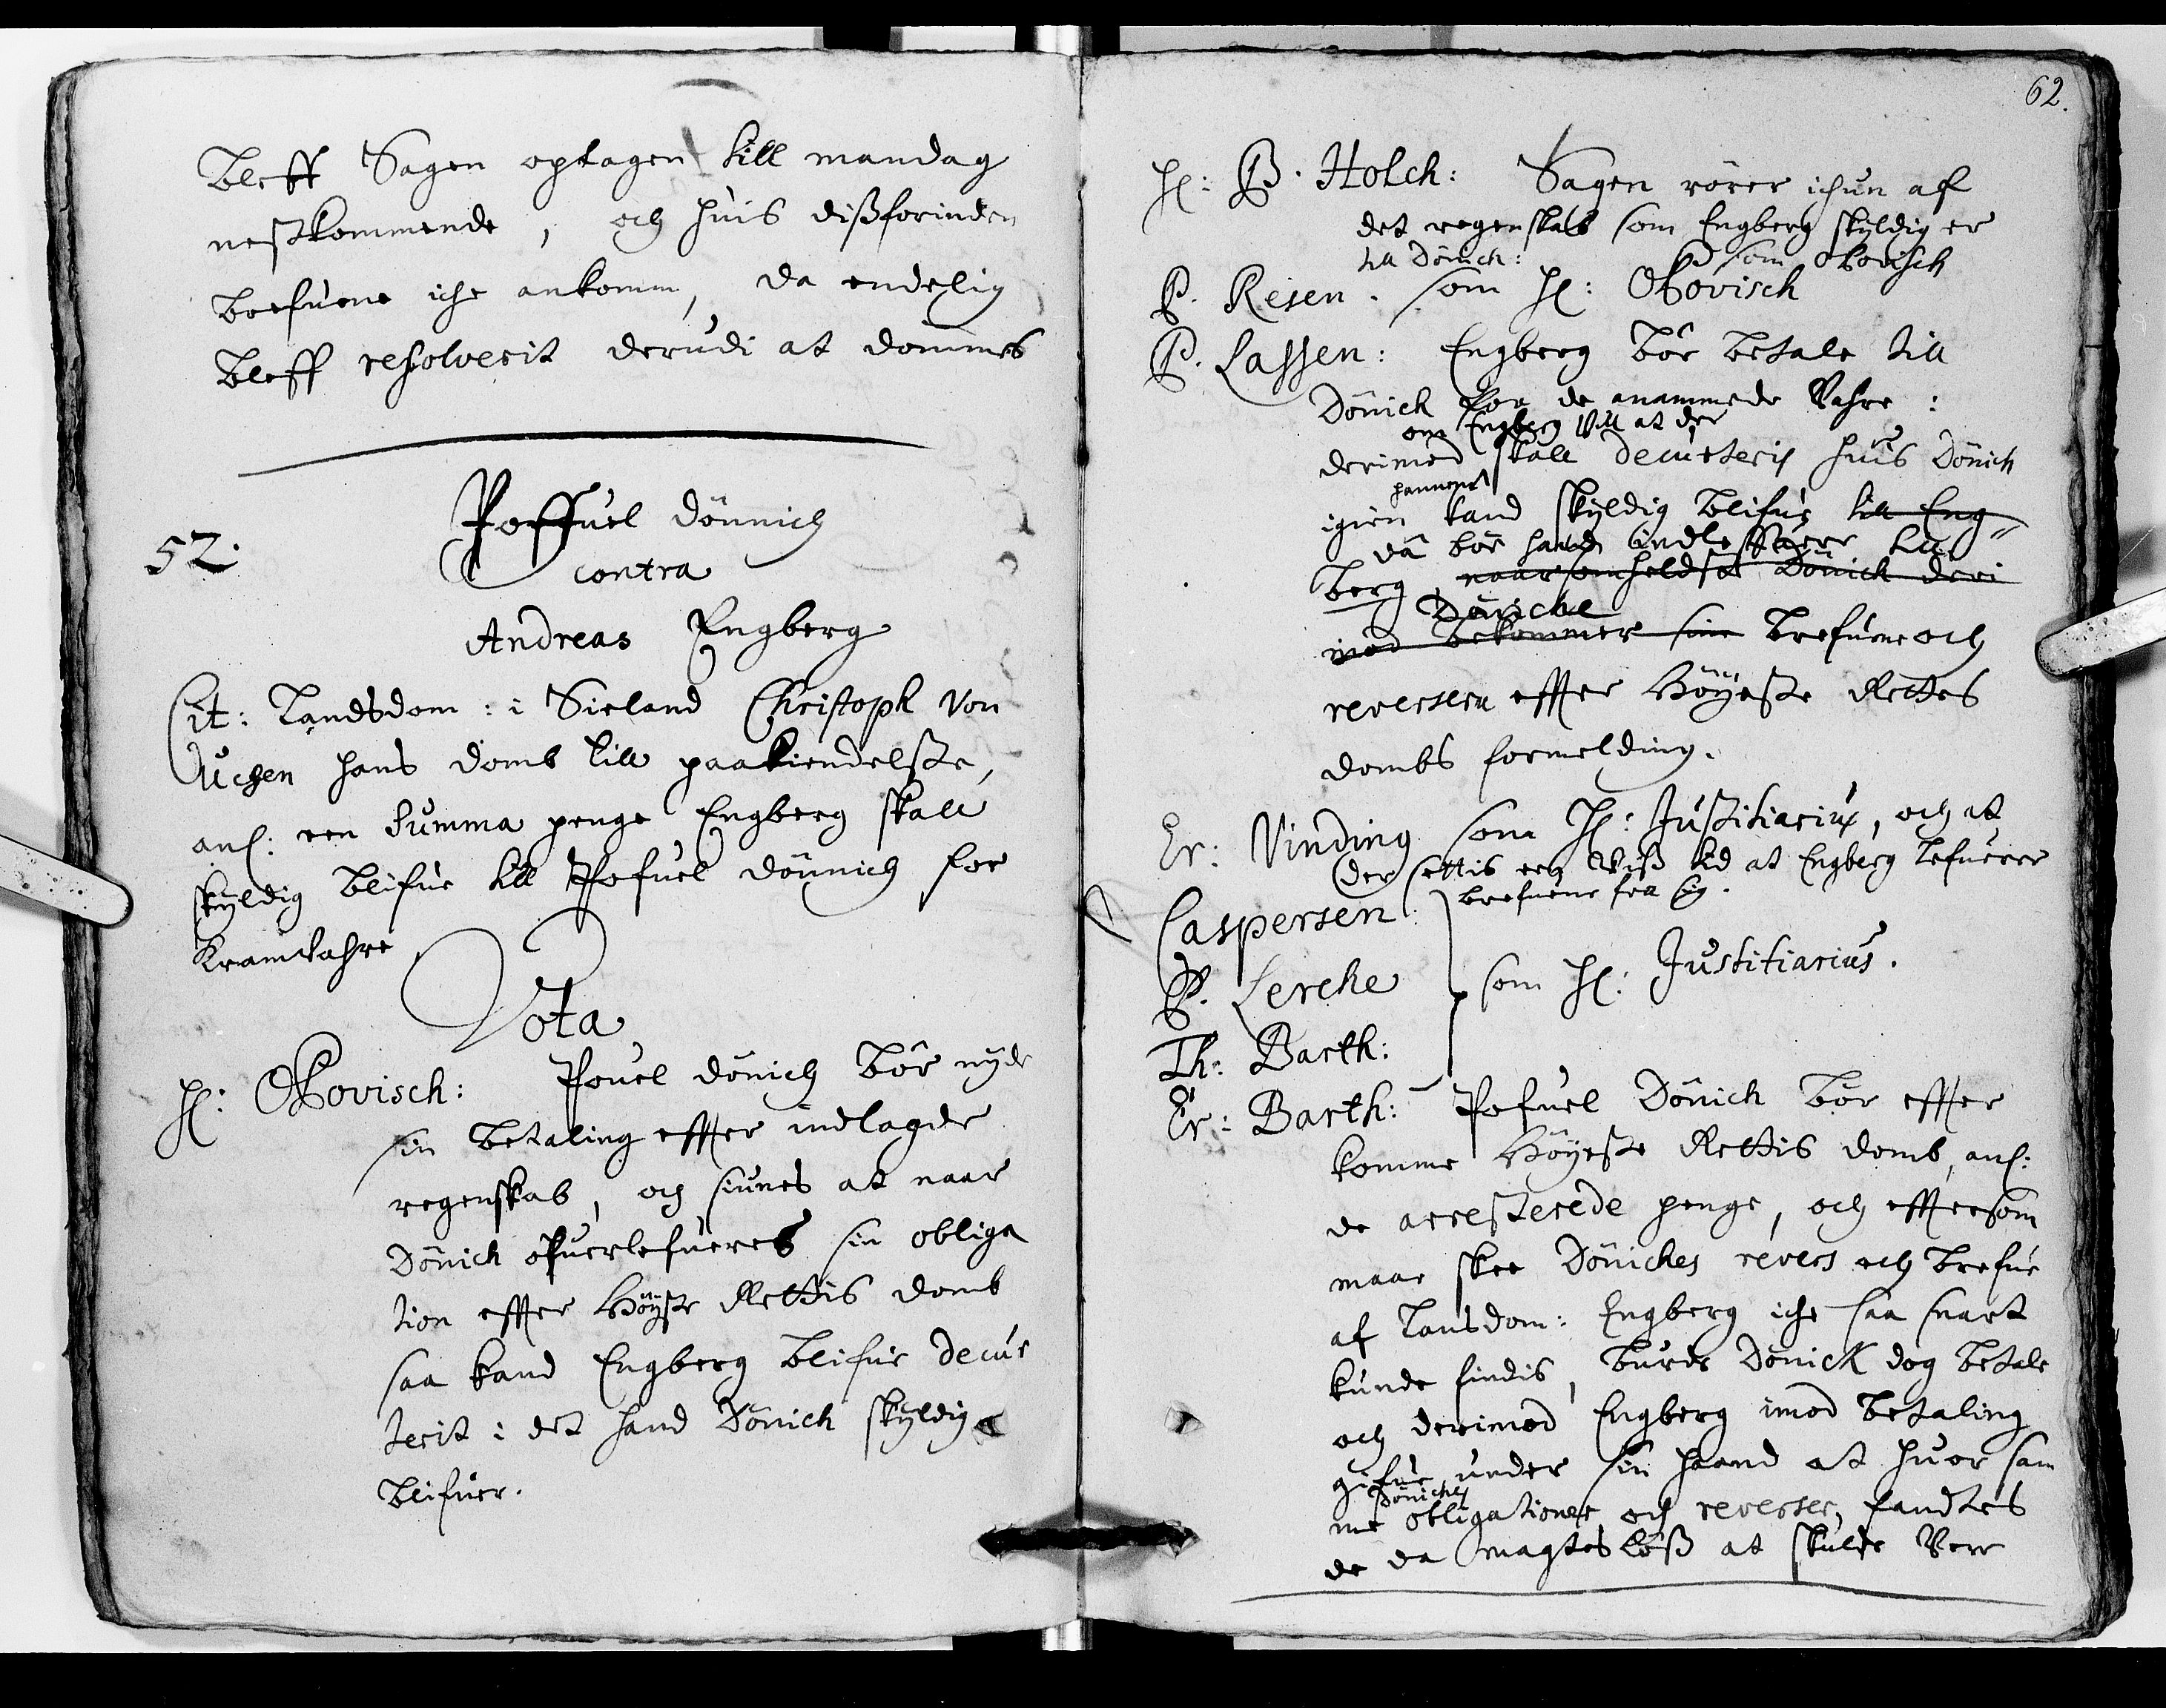 Bleff Sagen optagen till mandag
nestkommende, och huis dissforinden
brefuene iche ankomm, da endelig
bleff resolverit derudi at dømmes
52.
Poffuel Dönnich
contra
Andreas Engberg
Cit: Landsdom: i Sieland Christoph Von
Uchen hans domb till paakiendelsse,
anl: een Summa penge Engberg skall
skyldig blifue till Pofuel Dönnich for
Kramvahre
Vota
H: OKovisch: Pouel Dönich bör nyde
sin betaling effter indlagde
regenskab, och siunes at naar
Dönich ofuerlefueres sin obliga
tion effter Höyste Rettis domb
saa kand Engberg blifue decur
terit i det hand Dönich skyldig
blifuer.
62.
H: B. Holch: Sagen rörer ichun af
det regenskab som Engberg skyldig er
till Dönich: som OKovisch
P. Resen. som H: OKovisch
P. Lassen: Engberg bör betale till
Dönich for de anammede Vahre:
om Engberg vill at der
derimod skall decurteris huis Dönich
hannem
igien kand skyldig blifue till Eng
da bör hand indleffuere till
berg, naarsomheldst Dönich deri
Döniche
mod bekommer sine brefuene och
reverserne effter Höyeste Rettes
dombs formelding.
Er: Vinding som H: Justitiarius, och at
der settis een Viss tid at Engberg lefuerer
brefuene fra sig.
Caspersen:
P. Lerche som H: Justitiarius.
Th: Barth:
Er: Barth: Pofuel Dönich bör effter
komme Höyeste Rettis domb, anl:
de arresterede penge, och efftersom
maae skee Döniches revers och brefue
af Lansdom: Engberg iche saa snart
kunde findis, burde Dönick dog betale
och derimod Engberg imod betaling
gifue under sin haand at huor sam
Döniches
me obligationer och reverser, fandtes
de da magtesløss at skulde Vere